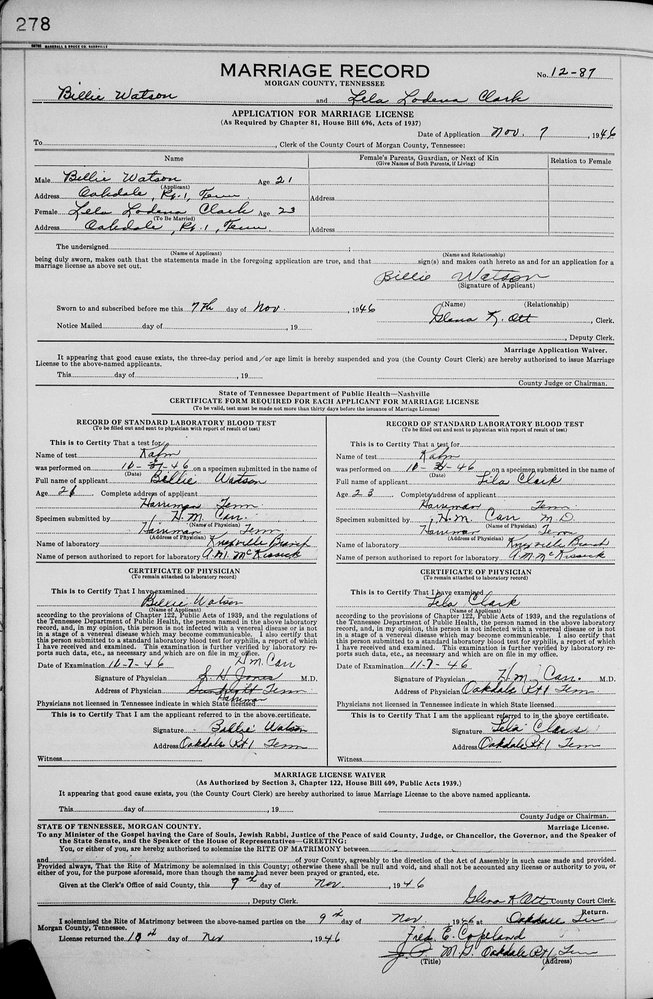 278
MARSHALL & BRUCE CO. NASHVILLE
MARRIAGE RECORD
MORGAN COUNTY, TENNESSEE
No. 12-87
Billie Watson and Lela Lodena Clark
APPLICATION FOR MARRIAGE LICENSE
(As Required by Chapter 81, House Bill 696, Acts of 1937)
Date of Application Nov. 7, 1946
To, Clerk of the County Court of Morgan County, Tennessee:
Name
Female's Parents, Guardian, or Next of Kin
(Give Names of Both Parents, if Living)
Relation to Female
Male Billie Watson Age 21
(Applicant)
Address Oakdale, Rt. 1, Tenn.
Address
Female Lela Lodena Clark Age 23
(To Be Married)
Address Oakdale, Rt. 1, Tenn.
Address
The undersigned
(Name of Applicant) (Name and Relationship)
being duly sworn, makes oath that the statements made in the foregoing application are true, and that sign(s) and makes oath hereto as and for an application for a
marriage license as above set out.
Billie Watson
(Signature of Applicant)
(Name) (Relationship)
Sworn to and subscribed before me this 7th day of Nov., 1946 Glena K. Ott, Clerk.
Notice Mailed day of, 19
, Deputy Clerk.
Marriage Application Waiver.
It appearing that good cause exists, the three-day period and/or age limit is hereby suspended and you (the County Court Clerk) are hereby authorized to issue Marriage
License to the above-named applicants.
This day of, 19
County Judge or Chairman.
State of Tennessee Department of Public Health—Nashville
CERTIFICATE FORM REQUIRED FOR EACH APPLICANT FOR MARRIAGE LICENSE
(To be valid, test must be made not more than thirty days before the issuance of Marriage License)
RECORD OF STANDARD LABORATORY BLOOD TEST
(To be filled out and sent to physician with report of result of test)
This is to Certify That a test for
Name of test Kahn
was performed on 10-31-46 on a specimen submitted in the name of
(Date)
Full name of applicant Billie Watson
Age 26 Complete address of applicant
Harriman Tenn.
Specimen submitted by H. M. Carr.
(Name of Physician)
Harriman Tenn
(Address of Physician)
Name of laboratory Knoxville Branch
Name of person authorized to report for laboratory A. M. McKissick
CERTIFICATE OF PHYSICIAN
(To remain attached to laboratory record)
This is to Certify That I have examined
Billie Watson
(Name of Applicant)
according to the provisions of Chapter 122, Public Acts of 1939, and the regulations of
the Tennessee Department of Public Health, the person named in the above laboratory
record, and, in my opinion, this person is not infected with venereal disease or is not
in a stage of a venereal disease which may become communicable. I also certify that
this person submitted to a standard laboratory blood test for syphilis, a report of which
I have received and examined. This examination is further verified by laboratory re-
ports such data, etc., as necessary and which are on file in my office.
Date of Examination 11-7-46 H. M. Carr
Signature of Physician S. H. Jones M.D.
Address of Physician Tenn
Physicians not licensed in Tennessee indicate in which State licensed
This is to Certify That I am the applicant referred to in the above certificate.
Signature Billie Watson
Address Oakdale Rt 1 Tenn
Witness
RECORD OF STANDARD LABORATORY BLOOD TEST
(To be filled out and sent to physician with report of result of test)
This is to Certify That a test for
Name of test Kahn
was performed on 10-31-46 on a specimen submitted in the name of
(Date)
Full name of applicant Lila Clark
Age 23 Complete address of applicant
Harriman Tenn.
Specimen submitted by H. M. Carr M.D.
(Name of Physician)
Harriman Tenn
(Address of Physician)
Name of laboratory Knoxville Branch
Name of person authorized to report for laboratory A. M. McKissick
CERTIFICATE OF PHYSICIAN
(To remain attached to laboratory record)
This is to Certify That I have examined
Lela Clark
(Name of Applicant)
according to the provisions of Chapter 122, Public Acts of 1939, and the regulations of
the Tennessee Department of Public Health, the person named in the above laboratory
record, and, in my opinion, this person is not infected with venereal disease or is not
in a stage of a venereal disease which may become communicable. I also certify that
this person submitted to a standard laboratory blood test for syphilis, a report of which
I have received and examined. This examination is further verified by laboratory re-
ports such data, etc., as necessary and which are on file in my office.
Date of Examination 11-7-46
Signature of Physician H. M. Carr. M.D.
Address of Physician Oakdale Rt 1 Tenn
Physicians not licensed in Tennessee indicate in which State licensed
This is to Certify That I am the applicant referred to in the above certificate.
Signature Lela Clark
Address Oakdale Rt 1 Tenn
Witness
MARRIAGE LICENSE WAIVER
(As Authorized by Section 3, Chapter 122, House Bill 609, Public Acts 1939.)
It appearing that good cause exists, you (the County Court Clerk) are hereby authorized to issue Marriage License to the above named applicants.
This day of, 19
County Judge or Chairman.
STATE OF TENNESSEE, MORGAN COUNTY. Marriage License.
To any Minister of the Gospel having the Care of Souls, Jewish Rabbi, Justice of the Peace of said County, Judge, or Chancellor, the Governor, and the Speaker of
the State Senate, and the Speaker of the House of Representatives—GREETING:
You, or either of you, are hereby authorized to solemnize the RITE OF MATRIMONY between
and of your County, agreeably to the direction of the Act of Assembly in such case made and provided.
Provided always, That the Rite of Matrimony be solemnized in this County; otherwise these shall be null and void, and shall not be accounted any license or authority to you, or
either of you, for the purpose aforesaid, more than though the same had never been prayed or granted, etc.
Given at the Clerk's Office of said County, this 9th day of Nov., 1946
, Deputy Clerk. Glena K Ott County Court Clerk.
Return.
I solemnized the Rite of Matrimony between the above-named parties on the 9th day of Nov 1946 at Oakdale Tenn
Morgan County, Tennessee.
License returned the 18th day of Nov, 1946 Fred E. Copeland
J. P. M. D. Oakdale Rt 1 Tenn
(Title) (Address)